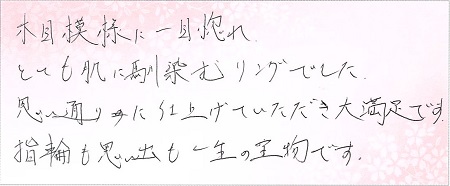 木目模様に一目惚れ
とても肌に馴染むリングでした.
思い通りに仕上げていただき大満足です.
指輪も思い出も一生の宝物です.